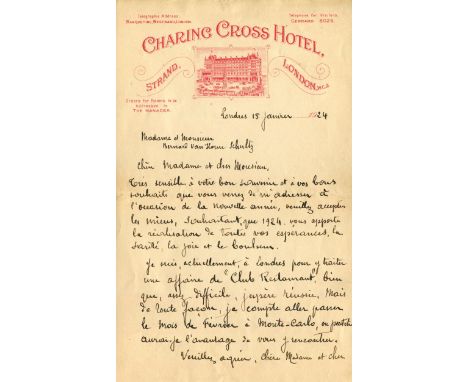 Telegraphic Address
Telephone for Visitors,
Gerrard 8025.
CHARING CROSS HOTEL,
STRAND,
LONDON, W.C.2
Orders for Rooms to be
Addressed to
THE MANAGER.
Londres 15 janvier 1924
Madame et Monsieur
Bernard Van Horne Schultz
Chère Madame et cher Monsieur,
Très sensible à votre bon souvenir et à vos bons
souhaits que vous venez de m'adresser à
l'occasion de la nouvelle année, veuillez accepter
les miens, souhaitant, que 1924 vous apporte
la réalisation de toutes vos espérances, la
santé, la joie et le bonheur.
Je suis, actuellement, à Londres pour y traiter
une affaire de "Club Restaurant", bien
que, assez difficile, j'espère réussir, mais
de toute façon, je compte aller passer
le mois de Février à Monte-Carlo, ou peut-être
aurai-je l'avantage de vous y rencontrer.
Veuillez agréer, chère Madame et cher